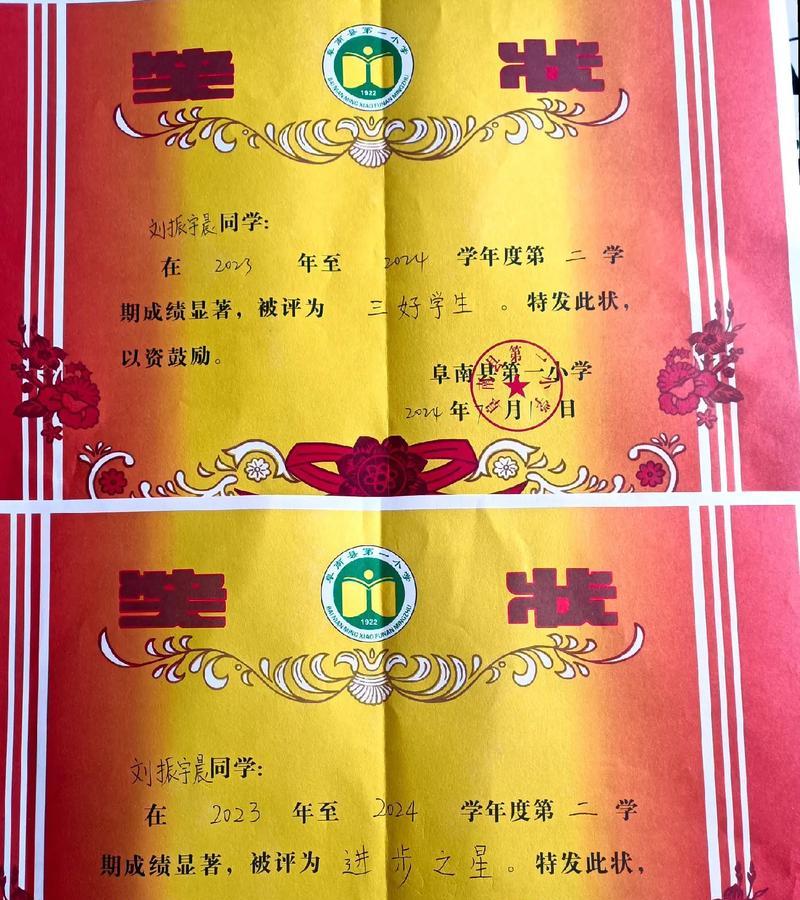 奖 状
阜南县第一小学
1922
BAI NIAN MING XIAO FUNAN MINGZHU
刘振宇晨同学:
在 2023 年至 2024 学年度第 二 学
期成绩显著，被评为 三好学生 。特发此状，
以资鼓励。
阜南县第一小学
2024 年7月 日
奖 状
阜南县第一小学
1922
BAI NIAN MING XIAO FUNAN MINGZHU
刘振宇晨同学:
在 2023 年至 2024 学年度第 二 学
期成绩显著，被评为 进步之星 。特发此状，